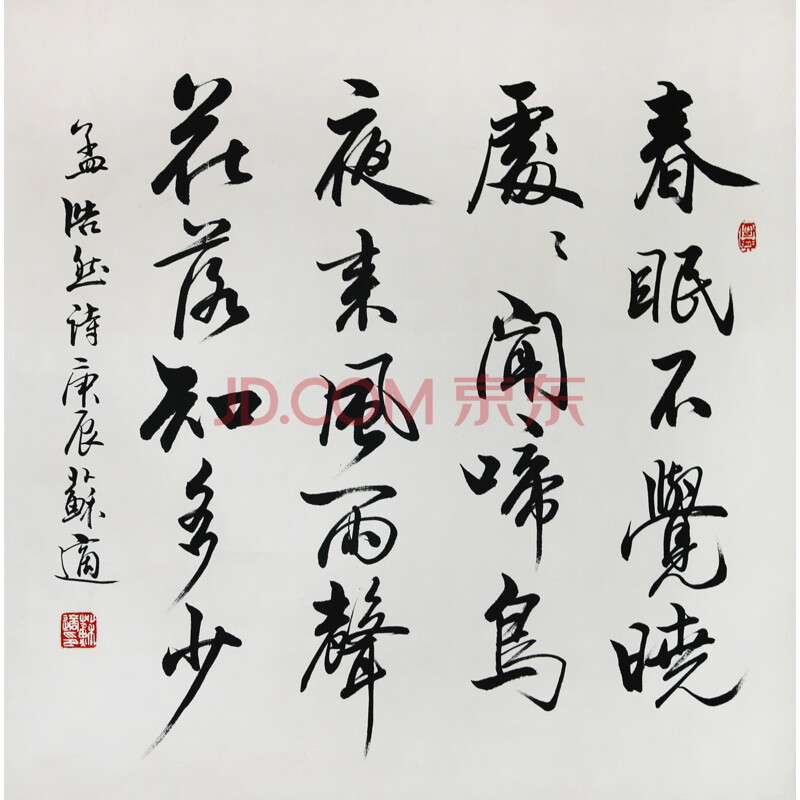 春眠不覺曉
處〻聞啼鳥
夜来風雨聲
花落知多少
孟浩然詩庚辰蘇適
JD.COM 京东